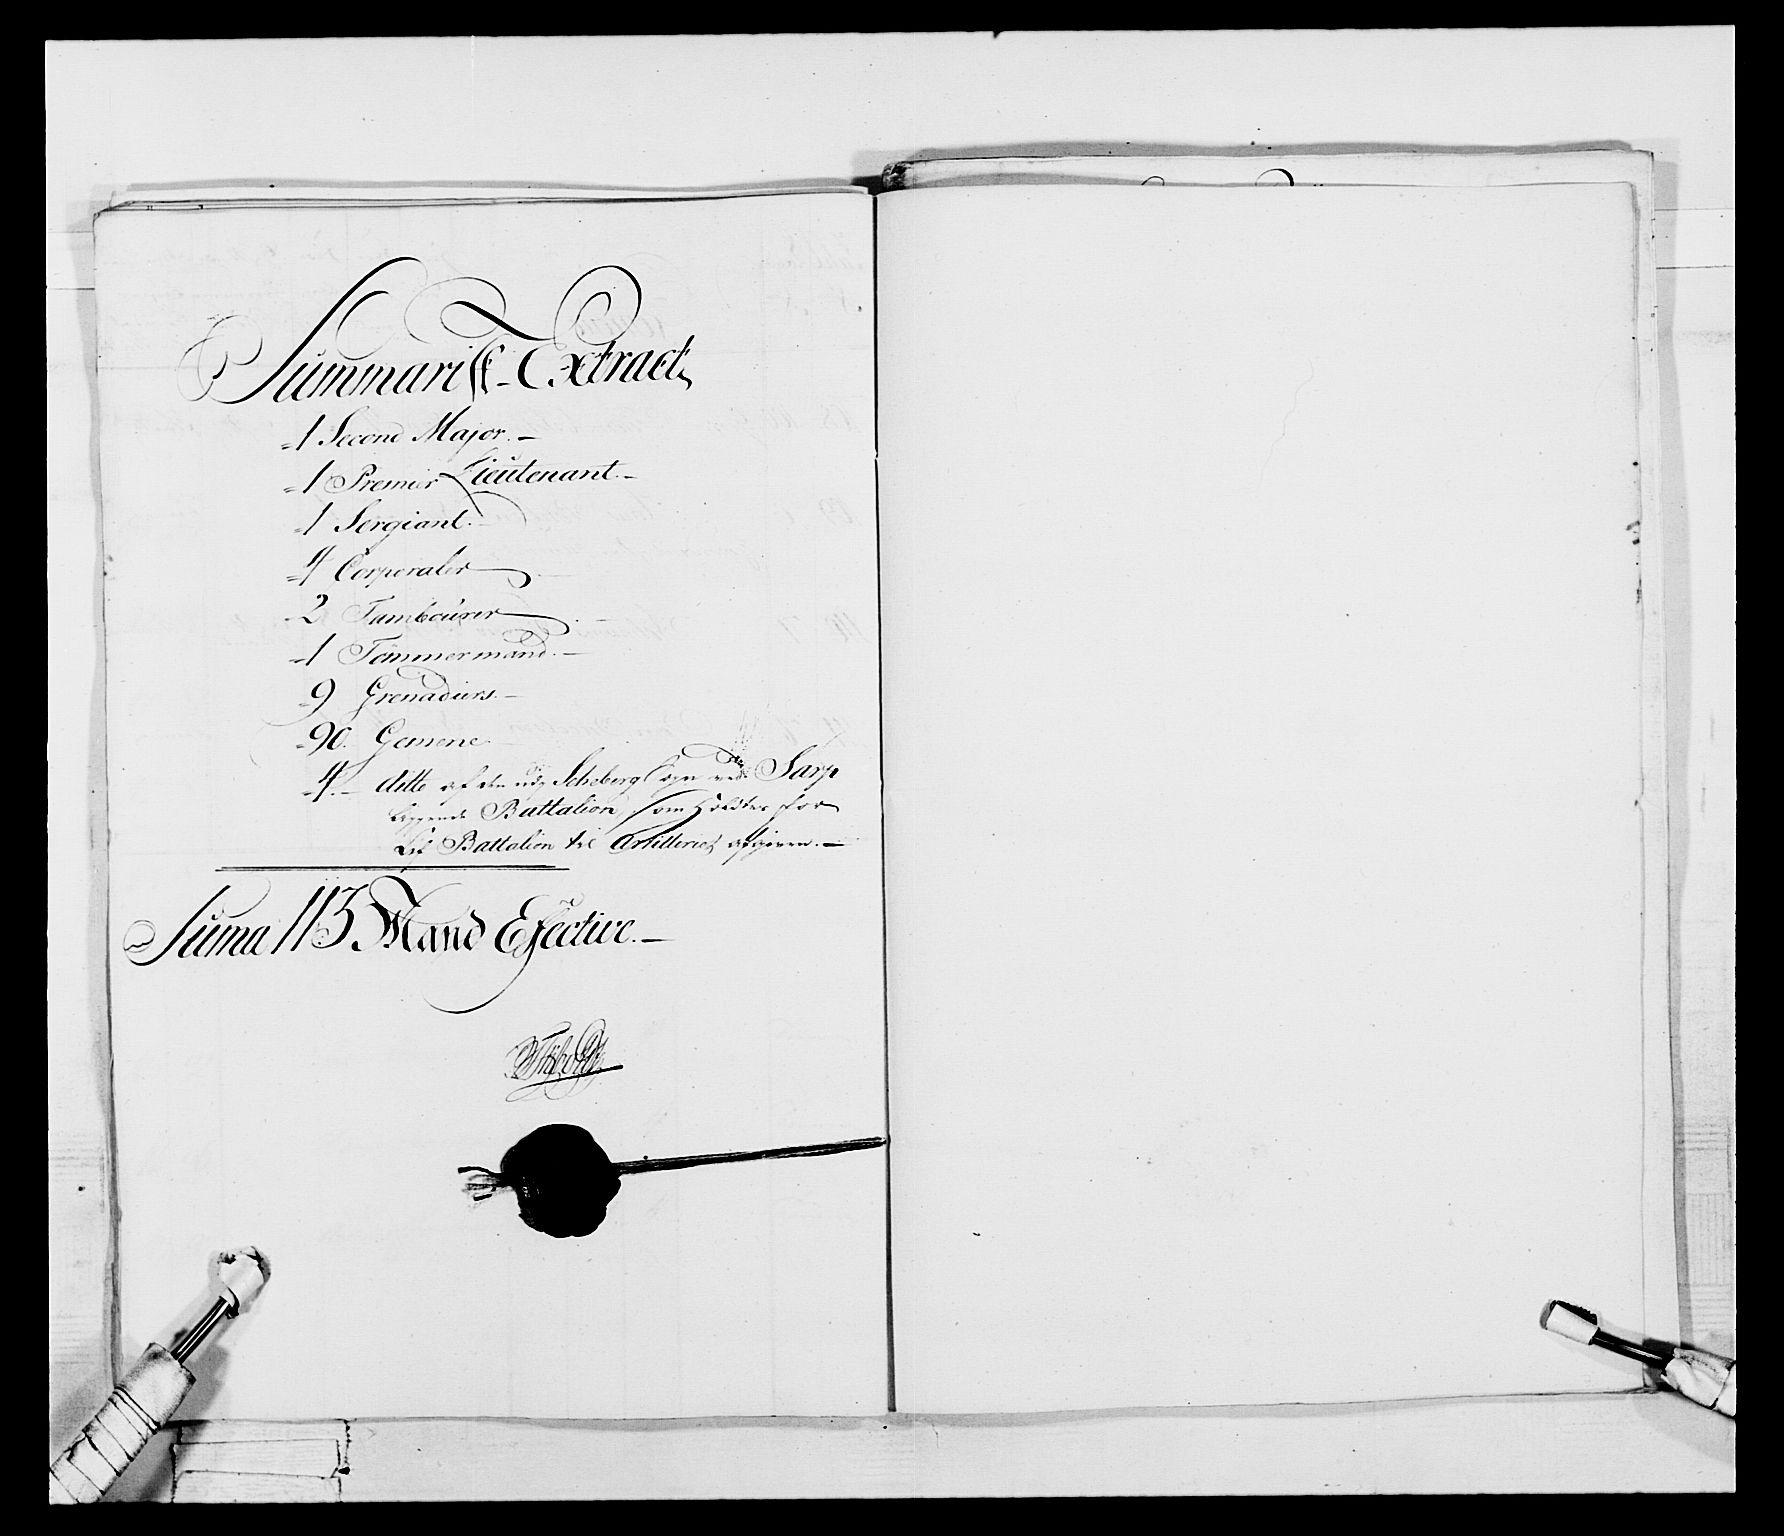 Summarisk Extract
1 Second Major.
1 Premier Lieutenant.
1 Sergiant.
4 Corporaler
2 Tambourer
1 Tömmermand.
9 Grenadiers.
90. Gemene.
4. ditte af den udj Scheberg Sogn ved Sarp
liggende Battalion som holdtes for
Lif Battalion til Artilleriet afgiven.
Suma 113 Mand Efective.